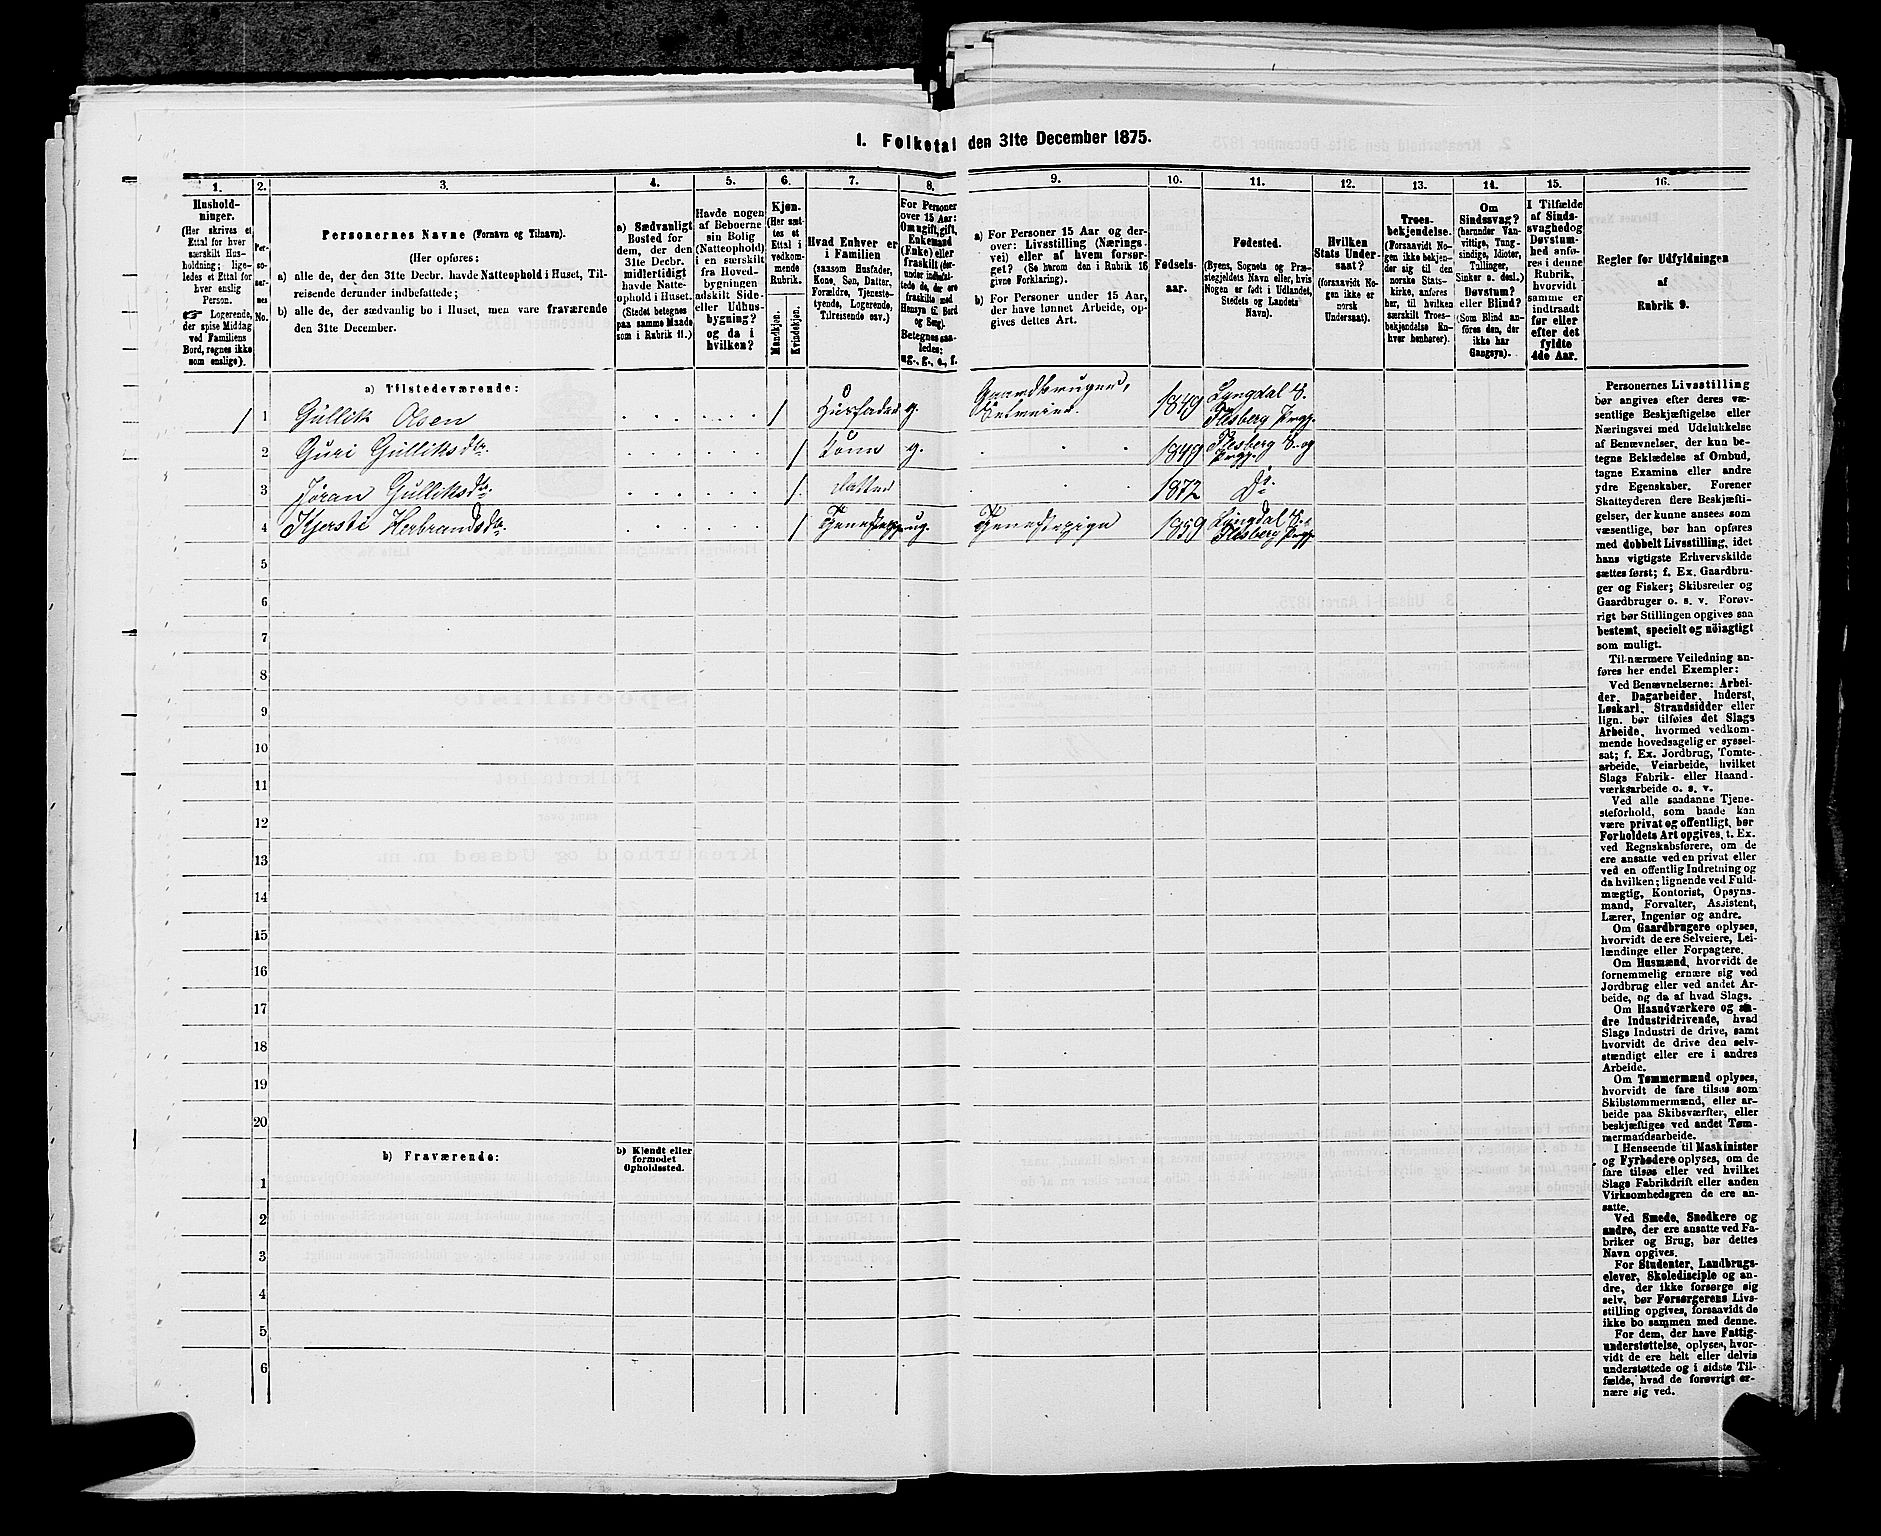 1. Folketal den 31te December 1875.
1.
2.
3.
4.
5.
6.
7.
8.
9.
10.
11.
12.
13.
14.
15.
16.
Hushold-
ninger.
(Her skrives et
Ettal for hver
særskilt Hus-
holdning; lige-
ledes et Ettal for
hver enslig
Person.
☛ Logerende,
der spise Middag
ved Familiens
Bord, regnes ikke
som enslige).
Per-
so-
ner-
nes
No.
Personernes Navne (Fornavn og Tilnavn).
(Her opføres:
a) alle de, der den 31te Decbr. havde Natteophold i Huset, Til-
reisende derunder indbefattede;
b) alle de, der sædvanlig bo i Huset, men vare fraværende
den 31te December.
a) Sædvanligt
Bosted for
dem, der den
31te Decbr.
midlertidigt
havde Natte-
ophold i Huset.
(Stedet betegnes
paa samme Maade
som i Rubrik 11.)
Havde nogen
af Beboerne
sin Bolig
(Natteophold)
i en særskilt
fra Hoved-
bygningen
adskilt Side-
eller Udhus-
bygning?
og da i
hvilken?
Kjøn.
(Her sæt-
tes et
Ettal i
vedkom-
mende
Rubrik.
Mandkjøn.
Kvindekjøn.
Hvad Enhver er
i Familien
(saasom Husfader,
Kone, Søn, Datter,
Forældre, Tjeneste-
tyende, Logerende,
Tilreisende osv.)
For Personer
over 15 Aar:
Om ugift, gift,
Enkemand
(Enke) eller
fraskilt (der-
under indbefat-
tede de, der ere
fraskilte med
Hensyn til Bord
og Seng).
Betegnes saa-
ledes:
ug., g., e., f.
a) For Personer 15 Aar og der-
over: Livsstilling (Nærings-
vei) eller af hvem forsør-
get? (Se herom den i Rubrik 16
givne Forklaring).
b) For Personer under 15 Aar,
der have lønnet Arbeide, op-
gives dettes Art.
Fødsels-
aar.
Fødested.
(Byens, Sognets og Præ-
stegjeldets Navn eller, hvis
Nogen er født i Udlandet,
Stedets og Landets
Navn).
Hvilken
Stats Under-
saat?
(foraavidt No-
gen ikke er
norsk
Undersaat).
Troes-
bekjendelse.
(Forsaavidt No-
gen ikke bekjen-
der sig til den
norske Stats-
kirke, anføres
her, til hvilken
særskilt Troes-
bekjendelse En-
hver henhører).
Om
Sindssvag?
(herunder Van-
vittige, Tung-
sindige, Idioter,
Tullinger,
Sinker o. desl.)
Døvstum?
eller Blind?
(Som Blind an-
føres den, der
ikke har
Gangsyn).
I Tilfælde
af Sinds-
svaghed og
Døvstum-
hed anfø-
res i denne
Rubrik,
hvorvidt
samme er
indtraadt
før eller
efter det
fyldte
4de Aar.
Regler for Udfyldningen
af
Rubrik 9.
a) Tilstedeværende:
1 1 Gullik Olsen 1 Husfader g. Gaardbruger, Selveier. 1849 Lyngdal S. Flesberg Prgj.
2 Guri Gulliksdtr. 1 Kone g. 1849 Flesberg S. og Prgj.
3 Jøran Gulliksdtr. 1. datter 1872 Do
4 Kjersti Herbrandsdtr. 1 ug. Tjenestepige 1859 Lyngdal S. Flesberg Prgj.
5
6
7
8
9
10
11
12
13
14
15
16
17
18
19
20
b) Fraværende:
b) Kjendt eller
formodet
Opholdssted.
1
2
3
4
5
6
Personernes Livsstilling
bør angives efter deres væ-
sentlige Beskjæftigelse eller
Næringsvei med Udelukkelse
af Benævnelser, der kun be-
tegne Beklædelse af Ombud,
tagne Examina eller andre
ydre Egenskaber. Forener
Skatteyderen flere Beskjæfti-
gelser, der kunne ansees som
væsentlige, bør han opføres
med dobbelt Livsstilling, idet
hans vigtigste Erhvervskilde
sættes først; f. Ex. Gaardbru-
ger og Fisker; Skibsreder og
Gaardbruger o. s. v. Forøv-
rigt bør Stillingen opgives saa
bestemt, specielt og nöiagtigt
som muligt.
Til nærmere Veiledning an-
føres her endel Exempler:
Ved Benævnelserne: Arbei-
der, Dagarbeider, Inderst,
Løskarl, Strandsidder eller
lign. bør tilføies det Slags
Arbeide, hvormed vedkom-
mende hovedsagelig er syssel-
sat; f. Ex. Jordbrug, Tomte-
arbeide, Veiarbeide, hvilket
Slags Fabrik- eller Haand-
værksarbeide o. s. v.
Ved alle saadanne Tjene-
steforhold, som baade kan
være privat og offentligt, bør
Forholdets Art opgives, t. Ex.
ved Regnskabsførere, om de
ere ansatte ved en privat eller
ved en offentlig Indretning og
da hvilken; lignende ved Fuld-
mægtig, Kontorist, Opsyns-
mand, Forvalter, Assistent,
Lærer, Ingeniør og andre.
Om Gaardbrugere oplyses,
hvorvidt de ere Selveiere, Lei-
lændinge eller Forpagtere.
Om Husmænd, hvorvidt de
fornemmelig ernære sig ved
Jordbrug eller ved andet Ar-
beide, og da af hvad Slags.
Om Haandværkere og an-
dre Industridrivende, hvad
Slags Industri de drive, samt
hvorvidt de drive den selv-
stændigt eller ere i andres
Arbeide.
Om Tømmermænd oplyses,
hvorvidt de fare tilsøs som
Skibstømmermænd, eller ar-
beide paa Skibsværfter, eller
beskjæftiges ved andet Tøm-
mermandsarbeide.
I Henseende til Maskinister
og Fyrbødere oplyses, om de
fare tilsøs eller ved hvilket
Slags Fabrikdrift eller anden
Virksomhedsgren de ere an-
satte.
Ved Smede, Snedkere og
andre, der ere ansatte ved Fa-
briker og Brug, bør dettes
Navn opgives.
For Studenter, Landbrugs-
elever, Skoledisciple og an-
dre, der ikke forsørge sig
selv, bør Forsørgerens Livs-
stilling opgives, forsaavidt de
ikke bo sammen med denne.
For dem, der have Fattig-
understøttelse, oplyses, hvor-
vidt de ere helt eller delvis
understøttede og i sidste Til-
fælde, hvad de forøvrigt er-
nære sig ved.